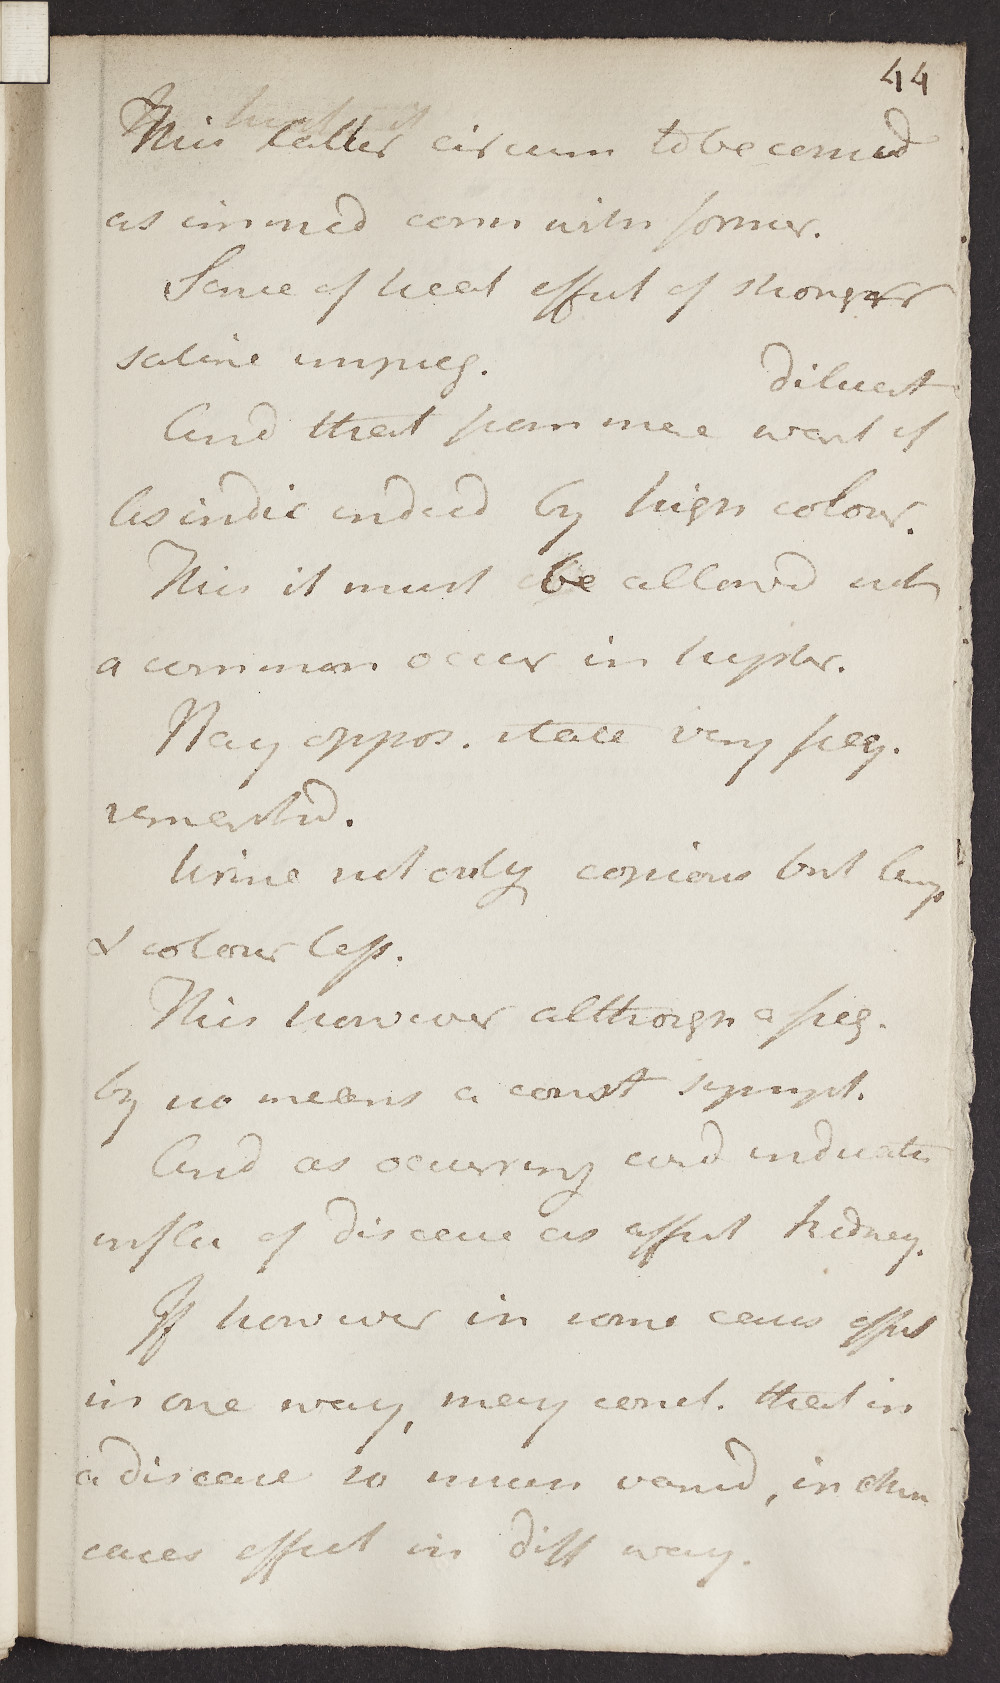 44
This latter circum to be consid
as immed conn with former.
Sense of heat effect of stronger
saline impreg.
diluent
And that from mere want of
As indic indeed by high colour.
This it must be allowed not
a common occur in hyster.
Nay oppos. state very freq.
remarked.
Urine not only copious but limp
& colourless.
This however although a freq.
by no means a const sympt.
And as occurring and indicates
influ of disease as affect kidney.
If however in some cases affect
in one way, may concl. that in
a disease so much varied, in other
cases affect in diff way.